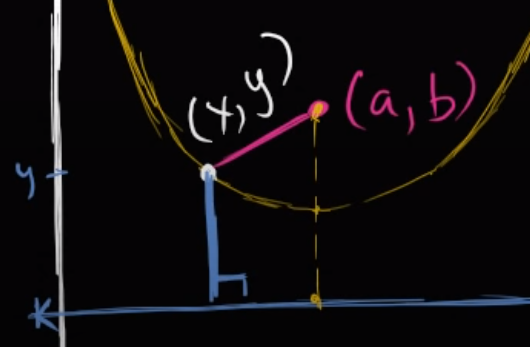 (x,y)
(a,b)
y
K